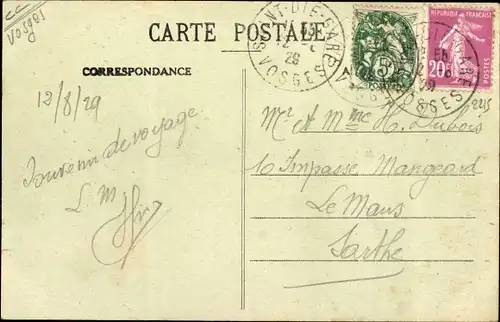 CC
Vosges
CARTE POSTALE
ST-DIE-GARE
VOSGES
29
5
REPUBLIQUE FRANÇAISE
20c
CORRESPONDANCE
12/8/29
Souvenir de voyage
L M
Mr et Mme H. Dubois
10 Impasse Mangeard
Le Mans
Sarthe